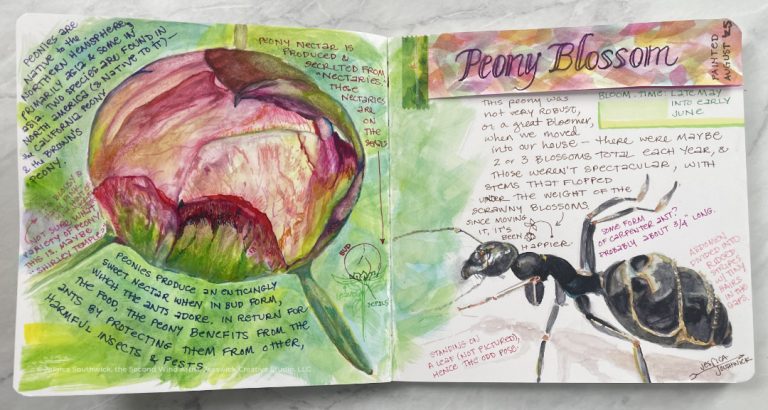 PEONIES ARE
NATIVE to the
NORTHERN HEMISPHERE,
PRIMARILY ASIA & SOME IN
ASIA. TWO SPECIES ARE FOUND IN
NORTH AMERICA (& NATIVE TO IT) —
the CALIFORNIA PEONY
& the BROWN'S
PEONY.
NOT SURE WHAT
VARIETY OF PEONY
THIS IS. MAYBE
PEONY NECTAR IS
PRODUCED &
SECRETED FROM
"NECTARIES."
THOSE
NECTARIES
ARE
ON
THE
SEPALS
BUD
SEPALS
PEONIES PRODUCE AN ENTICINGLY
SWEET NECTAR WHEN IN BUD FORM,
WHICH THE ANTS ADORE. IN RETURN FOR
THE FOOD, THE PEONY BENEFITS FROM THE
ANTS BY PROTECTING THEM FROM OTHER,
HARMFUL INSECTS & PESTS.
© Jessica Southwick, the Second Wind Artist, Jesswick Creative Studio, LLC
Peony Blossom
PAINTED
AUGUST '25
BLOOM TIME: LATE MAY
INTO EARLY
JUNE
THIS PEONY WAS
NOT VERY ROBUST,
OR A GREAT BLOOMER,
WHEN WE MOVED
INTO OUR HOUSE — THERE WERE MAYBE
2 OR 3 BLOSSOMS TOTAL EACH YEAR, &
THOSE WEREN'T SPECTACULAR, WITH
STEMS THAT FLOPPED
UNDER THE WEIGHT OF THE
SCRAWNY BLOSSOMS.
SINCE MOVING
IT, IT'S
BEEN
HAPPIER.
SOME FORM
OF CARPENTER ANT?
PROBABLY ABOUT 3/4" LONG.
ABDOMEN
DIVIDED INTO
STRIPES
W/ TINY
HAIRS
IN THE
GAPS.
STANDING ON
A LEAF (NOT PICTURED),
HENCE THE ODD POSE.
JESSICA
SOUTHWICK